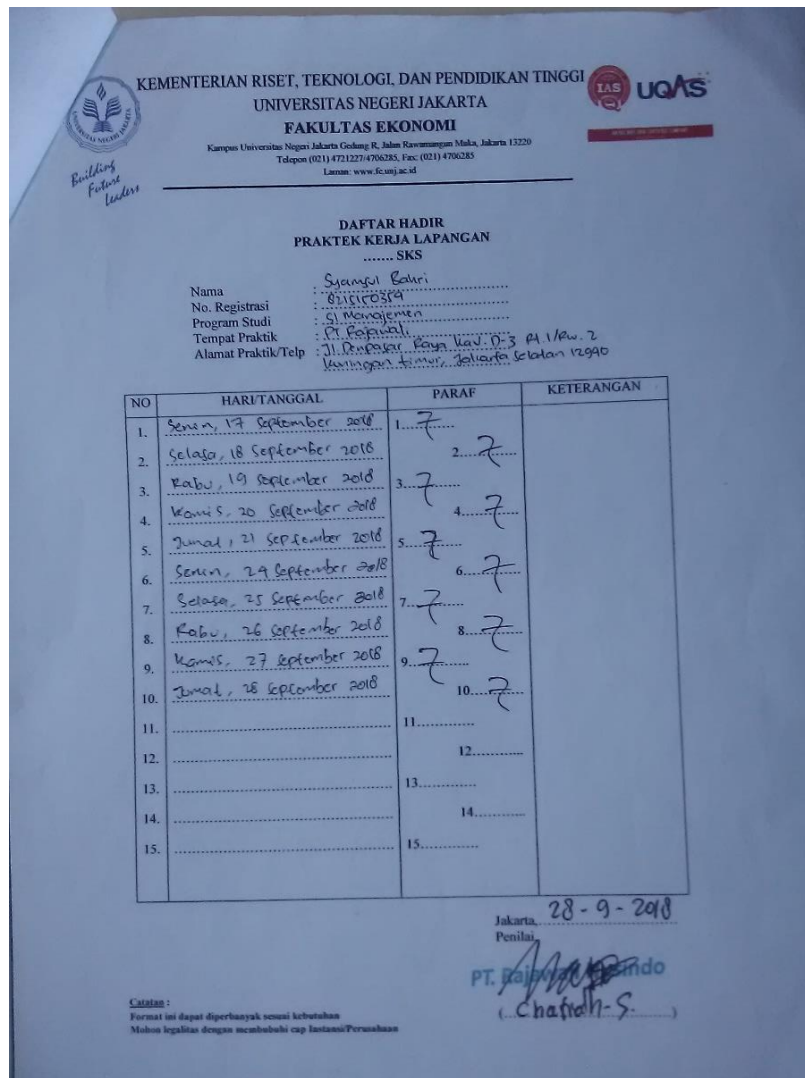 KEMENTERIAN RISET, TEKNOLOGI, DAN PENDIDIKAN TINGGI
UNIVERSITAS NEGERI JAKARTA
FAKULTAS EKONOMI
Kampus Universitas Negeri Jakarta Gedung R, Jalan Rawamangun Muka, Jakarta 13220
Telepon (021) 4721227/4706285, Fax: (021) 4706285
Laman: www.fe.unj.ac.id
Building
Future
Leaders
IAS
UQAS
DAFTAR HADIR
PRAKTEK KERJA LAPANGAN
....... SKS
Nama : Syamsul Bahri
No. Registrasi : 8215150359
Program Studi : S1 Manajemen
Tempat Praktik : PT Rajawali
Alamat Praktik/Telp : Jl. Denpasar Raya Kav. D-3 Rt.1/Rw.2
Kuningan timur, Jakarta Selatan 12940
NO HARI/TANGGAL PARAF KETERANGAN
1. Senin, 17 September 2018 1.
2. Selasa, 18 September 2018 2.
3. Rabu, 19 September 2018 3.
4. Kamis, 20 September 2018 4.
5. Jumat, 21 September 2018 5.
6. Senin, 24 September 2018 6.
7. Selasa, 25 September 2018 7.
8. Rabu, 26 September 2018 8.
9. Kamis, 27 September 2018 9.
10. Jumat, 28 September 2018 10.
11. 11.
12. 12.
13. 13.
14. 14.
15. 15.
Jakarta, 28-9-2018
Penilai,
PT.
Catatan :
Format ini dapat diperbanyak sesuai kebutuhan
Mohon legalitas dengan membubuhi cap Instansi/Perusahaan